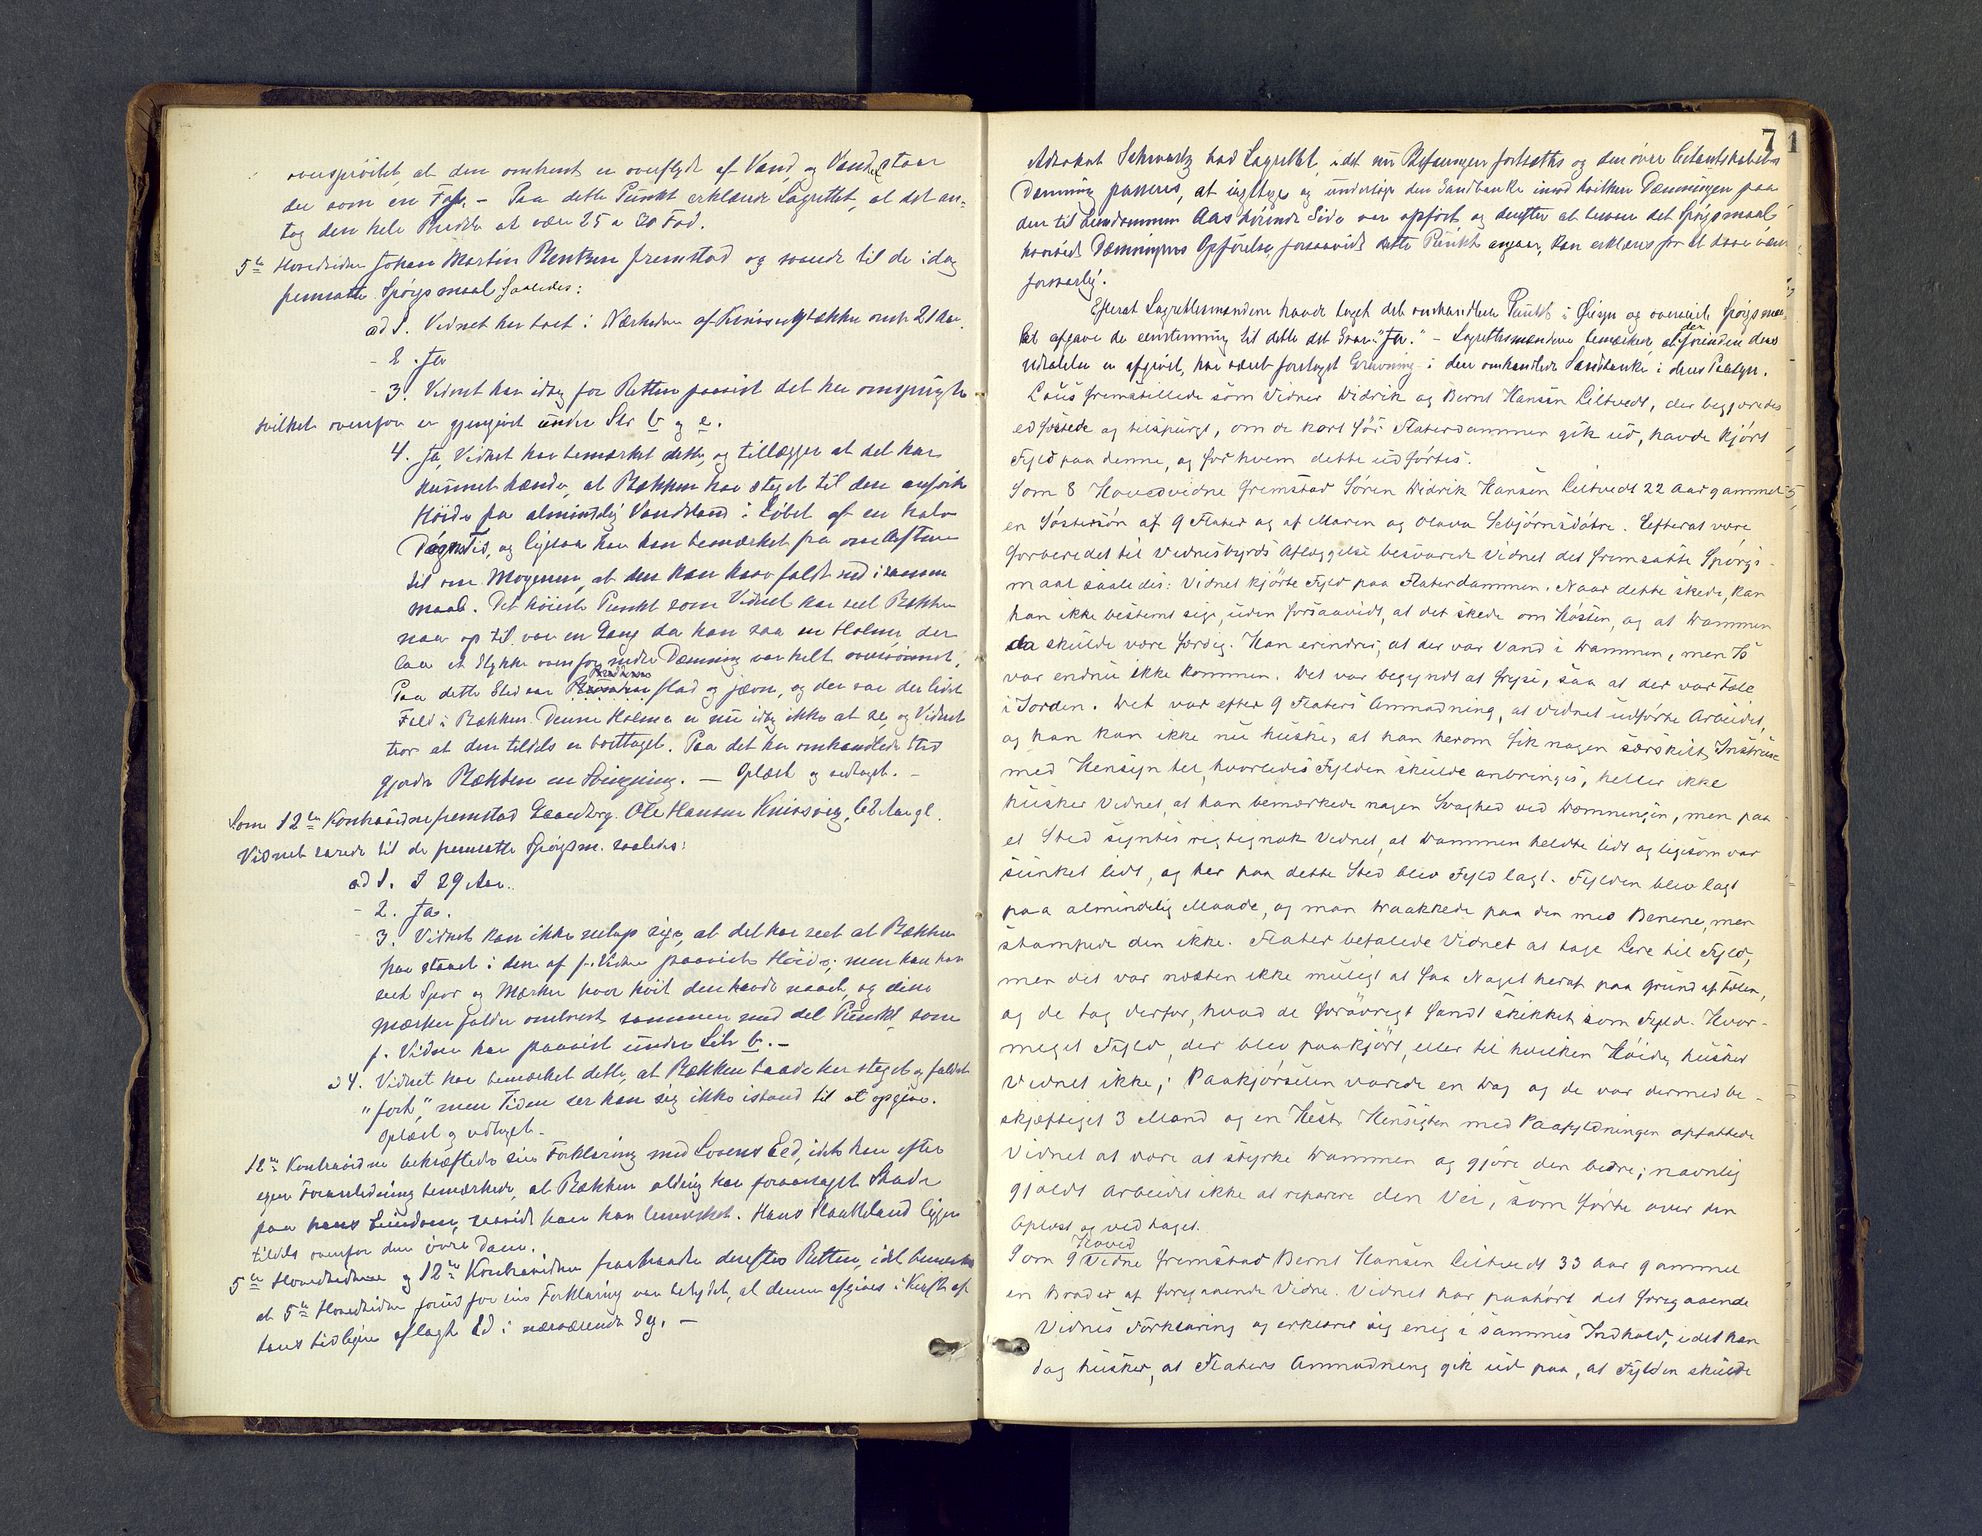 oversprøitet, at den omtrent er overflydt af Vand, og Vandet staar
der som en Foss. – Paa dette Punkt erklærede Lagrettet, at det an-
tog den hele Bredde at være 25 a 30 Fod.
5te Hovedvidne Johan Martin Bentzen fremstod og svarede til de idag
fremsatte Spørgsmaal saaledes:
ad 1. Vidnet har boet i Nærheden af bække omtr. 21 Aar.
- 2. Ja
- 3. Vidnet har idag for Retten paavist det her omspurgte
hvilket ovenfor er gjengivet under Litr b og e.
4. Ja, Vidnet har bemærket dette, og tillægger at det har
kunnet hænde, at Bækken har steget til den anførte
Høide fra almindelig Vandstand i Løbet af en halv
Døgns Tid, og ligesaa har han bemærket fra om Aftenen
til om Morgenen, at den kan have faldt ned i samme
Maal. Det høieste Punkt som Vidnet har seet Bækken
naa op til var en Gang da han saa en Holme, der
laa et Stykke ovenfor nedre Dæmning var helt oversvømmet.
Paa dette Sted var Bredderne flad og jævn, og der var der lidet
Fald i Bækken. Denne Holme er nu idag ikke at se, og Vidnet
tror at den tildels er borttaget. Paa det her omhandlede Sted
gjorde Bækken en Svingning. – Oplæst og vedtaget. –
Som 12te Kontravidne fremstod Gaardbrg. Ole Hansen 62 Aar gl.
Vidnet svarede til de fremsatte Spørgsm. saaledes:
ad 1. I 29 Aar.
- 2. Ja.
- 3. Vidnet kan ikke netop sige, at det har seet at Bækken
har staaet i den af f. Vidne paaviste Høide; men han har
seet Spor og Mærker hvor høit den havde naaet, og disse
Mærker falder omtrent sammen med det Punkt, som
f. Vidne har paavist under Litr b. –
4. Vidnet har bemærket dette, at Bækken baade har steget og faldet
"fort," men Tiden ser han sig ikke istand til at opgive.
Oplæst og vedtaget. –
12te Kontravidne bekræftede sin Forklaring med Lovens Eed, idet han efter
egen Foranledning bemærkede, at Bækken aldrig har foraarsaget Skade
paa hans Eiendom, saavidt han har bemærket. Hans ligger
tildels ovenfor den øvre Dam.
5te Hovedvidne og 12te Kontravidne fratraadte derefter Retten, idet bemærkes
at 5te Hovedvidne forud for sin Forklaring var betydet, at denne afgives i Kraft af
hans tidligere aflagte Ed i nærværende Sag. –
7 1
Advokat Schwartz bad Lagrettet, idet nu Befaringen fortsættes og den øvre Citantskabets
Dæmning passeres, at iagttage og undersøge den Sandbanke imod hvilken Dæmningen paa
den til Eiendommen Aas hørende Side var opført og derefter at besvare det Spørgsmaal
hvorvidt Dæmningens Opførelse, forsaavidt dette Punkt angaar, kan erklæres for at have været
forsvarlig.
Efterat Lagrettesmændene havde taget det omhandlede Punkt i Øiesyn og overveiet Spørgsmaa-
let afgave de eenstemmig til dette det Svar: "Ja." – Lagrettesmændene bemærker at der forinden denne
Udtalelse er afgivet, har været foretaget Gravning i den omhandlede Sandbanke i deres Paasyn.
Lous fremstillede som Vidner Widrik og Bernt Hansen Liltvedt, der begjæredes
edfæstede og tilspurgt, om de kort før Flaterdammen gik ud, havde kjørt
Fyld paa denne, og for hvem dette udførtes.
Som 8 Hovedvidne fremstod Søren Widrik Hansen Liltvedt 22 Aar gammel
en Søstersøn af G Flater og af Maren og Olava Sebjørnsdøtre. Efterat være
forberedet til Vidnesbyrds Aflæggelse besvarede Vidnet det fremsatte Spørgs-
maal saaledes: Vidnet kjørte Fyld paa Flaterdammen. Naar dette skede, kan
han ikke bestemt sige, uden forsaavidt, at det skede om Høsten, og at Dammen
da skulde være færdig. Han erindrer, at der var Vand i Dammen, men Is
var endnu ikke kommen. Det var begyndt at fryse, saa at der var Tæle
i Jorden. Det var efter G Flaters Anmodning, at Vidnet udførte Arbeidet,
og han kan ikke nu huske, at han herom fik nogen særskilt Instrux
med Hensyn til, hvorledes Fylden skulde anbringes, heller ikke
husker Vidnet, at han bemærkede nogen Svaghed ved Dæmningen, men paa
et Sted syntes rigtignok Vidnet, at Dammen heldte lidt og ligesom var
sunket lidt, og her paa dette Sted blev Fyld lagt. Fylden blev lagt
paa almindelig Maade, og man traakkede paa den med Benene, men
stampede den ikke. Flater befalede Vidnet at tage Lere til Fyld,
men det var næsten ikke muligt at faa Noget heraf paa Grund af Tælen,
og de tog derfor, hvad de forøvrigt fandt skikket som Fyld. Hvor-
meget Fyld, der blev paakjørt, eller til hvilken Høide, husker
Vidnet ikke; Paakjørselen varede en Dag og de var dermed be-
skjæftiget 3 Mand og en Hest. Hensigten med Paafyldningen opfattede
Vidnet at være at styrke Dammen og gjøre den bedre; navnlig
gjaldt Arbeidet ikke at reparere den Vei, som førte over den
Oplæst og vedtaget.
Som 9 Hovedvidne fremstod Bernt Hansen Liltvedt 33 Aar gammel
en Broder af foregaaende Vidne. Vidnet har paahørt det foregaaende
Vidnes Forklaring og erklærer sig enig i sammes Indhold, idet han
dog husker, at Flaters Anmodning gik ud paa, at Fylden skulde